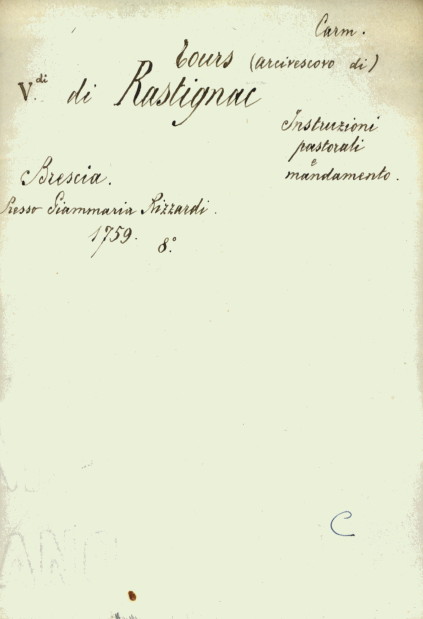 Carm.
Tours (arcivescovo di)
V.di di Rastignac
Instruzioni
pastorali
e
mandamento.
Brescia.
Presso Giammaria Rizzardi.
1759. 8.°
C